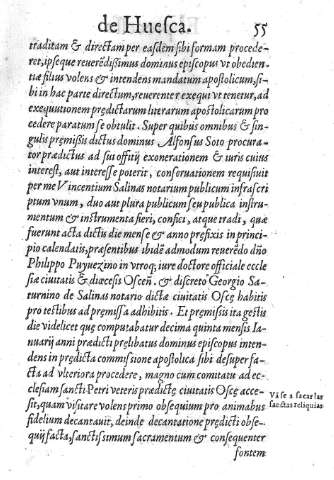 de Huesca. 55
traditam & directam per easdem sibi formam procede-
ret, ipseque reuerēdissimus dominus episcopus vt obedien-
tiæ filius volens & intendens mandatum apostolicum, si-
bi in hac parte directum, reuerenter exequi vt tenetur, ad
exequutionem prędictarum literarum apostolicarum pro
cedere paratum se obtulit. Super quibus omnibus & sin-
gulis pręmissis dictus dominus Alfonsus Soto procura-
tor prædictus ad sui offitij exonerationem & iuris cuius
interest, aut interesse poterit, conseruationem requisiuit
per me Vincentium Salinas notarium publicum infrascri
ptum vnum, duo aut plura publicum seu publica instru-
mentum & instrumenta fieri, confici, atque tradi, quæ
fuerunt acta dictis die mense & anno prefixis in princi-
pio calendatis, præsentibus ibidē admodum reuerēdo dño
Philippo Puyuezino in vtroq; iure doctore officiale eccle
siæ ciuitatis & diœcesis Osceñ. & discreto Georgio Sa-
turnino de Salinas notario dictæ ciuitatis Oscę habitis
pro testibus ad premissa adhibitis. Et premissis ita gestis
die videlicet que computabatur decima quinta mensis Ia-
nuarij anni prædicti prelibatus dominus episcopus inten-
dens in prędicta commissione apostolica sibi desuper fa-
cta ad vlteriora procedere, magno cum comitatu ad ec-
clesiam sancti Petri veteris prædictę ciuitatis Oscę acces-
sit, quam visitare volens primo obsequium pro animabus
fidelium decantauit, deinde decantatione prędicti obse-
quij facta, sanctissimum sacramentum & consequenter
fontem
Vāse a sacar las
sanctas reliquias